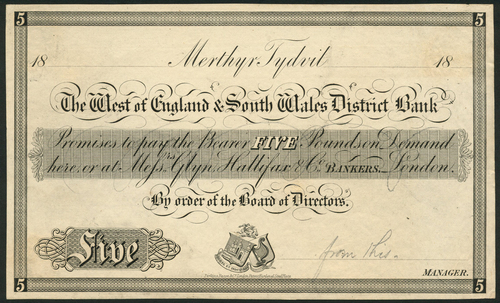 5 5
18 Merthyr Tydvil 18
The West of England & South Wales District Bank
Promises to pay the Bearer FIVE Pounds on Demand
here, or at Messrs. Glyn Hallifax & Co. BANKERS. London.
By order of the Board of Directors.
Five
from this
MANAGER.
5 5